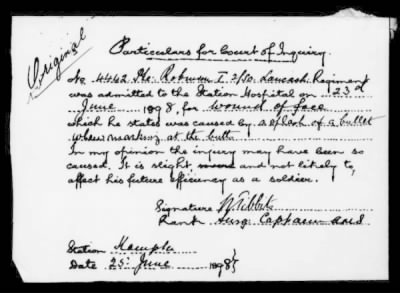 Original
Particulars for Court of Inquiry.
No 4442 Pte. Robinson T. 2/So. Lancash. Regiment
was admitted to the Station Hospital on 23rd
June 1898, for wound of face
which he states was caused by a splash of a bullet
When marking at the butt
In my opinion the injury may have been so
caused. It is slight and not likely to
affect his future efficiency as a soldier.
Signature
Rank Surg. Captain
Station Kamptee
Date 25: June 1898